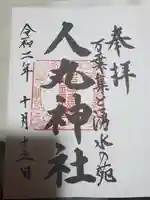 奉拝
万葉集と湧水の苑
人丸神社
令和二年 十月十三日